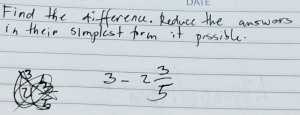 DATE
Find the difference. Reduce the answers
in their simplest form if possible.
3 - 2 3/5